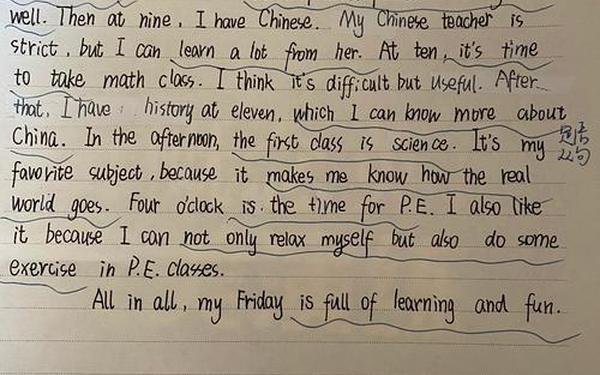 well. Then at nine, I have Chinese. My Chinese teacher is
strict, but I can learn a lot from her. At ten, it's time
to take math class. I think it's difficult but useful. After
that, I have history at eleven, which I can know more about
China. In the afternoon, the first class is science. It's my
favorite subject, because it makes me know how the real
world goes. Four o'clock is the time for P.E. I also like
it because I can not only relax myself but also do some
exercise in P.E. classes.
All in all, my Friday is full of learning and fun.